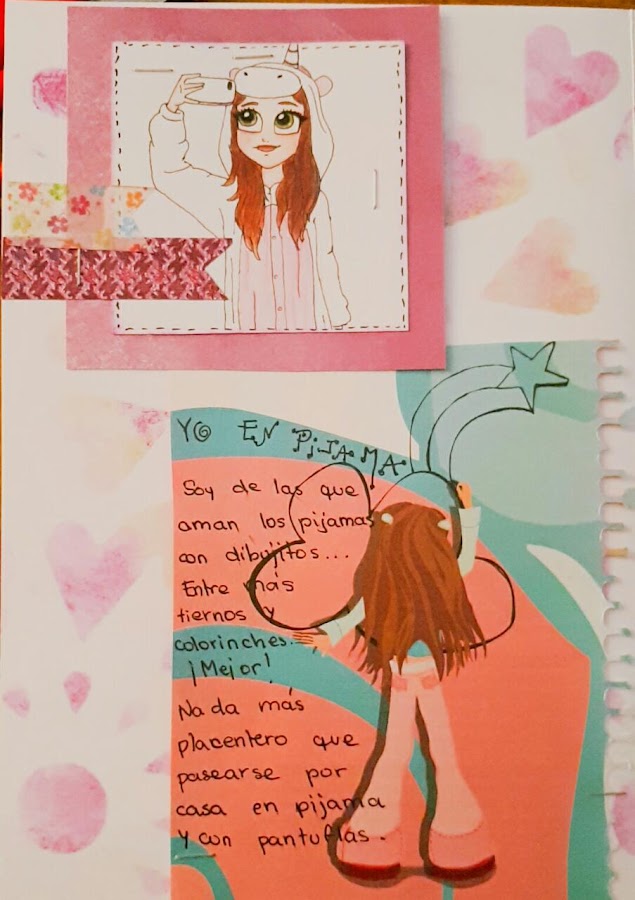 YO EN PiJAMA
Soy de las que
aman los pijamas
con dibujitos...
Entre más
tiernos y
colorinches.
¡Mejor!
Nada más
placentero que
pasearse por
casa en pijama
y con pantuflas.